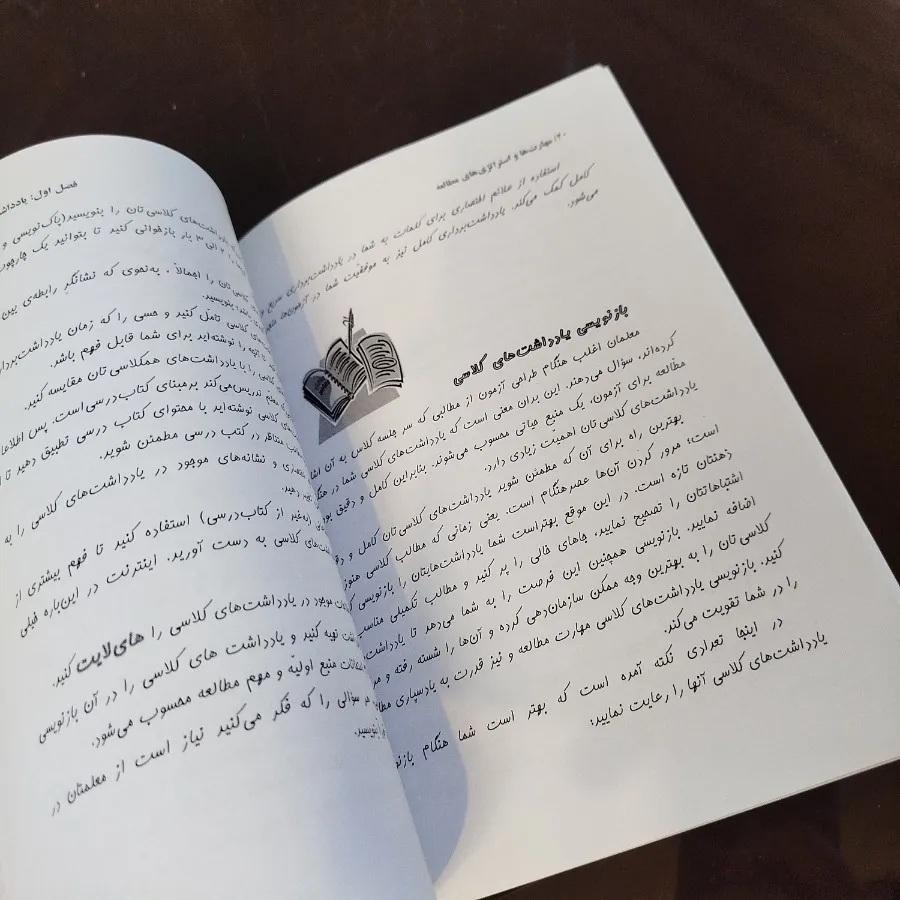 ۲۰/ مهارت‌ها و استراتژی‌های مطالعه
استفاده از علائم اختصاری برای کلمات به شما در یادداشت‌برداری سریع و
کامل کمک می‌کند. یادداشت‌برداری کامل نیز به موفقیت شما در آزمون‌ها
می‌شود.
بازنویسی یادداشت‌های کلاسی
معلمان اغلب هنگام طراحی آزمون از مطالبی که سر جلسه کلاس به آن
کرده‌اند، سؤال می‌دهند. این بدان معنی است که یادداشت‌های کلاسی شما در
مطالعه برای آزمون، یک منبع حیاتی محسوب می‌شوند. بنابراین کامل و دقیق
یادداشت‌های کلاسی‌تان اهمیت زیادی دارد.
بهترین راه برای آن که مطمئن شوید یادداشت‌های کلاسی‌تان کامل و
است، مرور کردن آن‌ها عصرهنگام است. یعنی زمانی که مطالب کلاسی هنوز
ذهنتان تازه است. در این موقع بهتراست شما یادداشت‌هایتان را بازنویسی
اشتباهاتتان را تصحیح نمایید، جاهای خالی را پر کنید و مطالب تکمیلی
اضافه نمایید. بازنویسی همچنین این فرصت را به شما می‌دهد تا
کلاسی تان را به بهترین وجه ممکن سازمان‌دهی کرده و آن‌ها را شسته رفته و
کنید. بازنویسی یادداشت‌های کلاسی مهارت مطالعه و نیز قدرت به یادسپاری
را در شما تقویت می‌کند.
در اینجا تعدادی نکته آمده است که بهتر است شما هنگام
یادداشت‌های کلاسی آنها را رعایت نمایید:
فصل اول:
یادداشت‌های کلاسی‌تان را بنویسید(پاک‌نویسی و
الی ۳ بار بازخوانی کنید تا بتوانید یک
کلاسی‌تان را اجمالاً، به‌نحوی که نشانگر رابطه‌ی بین
بنویسید.
کلاسی تامل کنید و حسی را که زمان
را نوشته‌اید برای شما قابل فهم باشد.
را با یادداشت‌های همکلاسی تان مقایسه کنید.
معلم تدریس‌می‌کند برمبنای کتاب‌درسی‌است. پس
کلاسی نوشته‌اید با محتوای کتاب درسی تطبیق دهید تا
متناظر در کتب درسی مطمئن شوید.
اختصاری و نشانه‌های موجود در یادداشت‌های کلاسی را به
دهید.
(به‌غیر از کتاب‌درسی) استفاده کنید تا فهم بیشتری از
کلاسی به دست آورید. اینترنت در این‌باره خیلی
موجود در یادداشت‌های کلاسی را های‌لایت کنید.
تهیه کنید و یادداشت های کلاسی را در آن بازنویسی
منبع اولیّه و مهم مطالعه محسوب می‌شود.
هر سؤالی را که فکر می‌کنید نیاز است از معلمتان در
بنویسید.